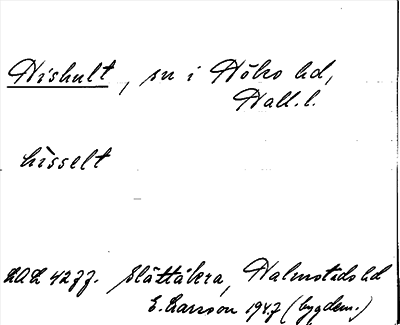 Hishult, sn i Höks hd,
Hall. l.
hìsselt
LAL 4277. Slättåkra, Halmstads hd
E. Larsson 1947 (bygdem.)